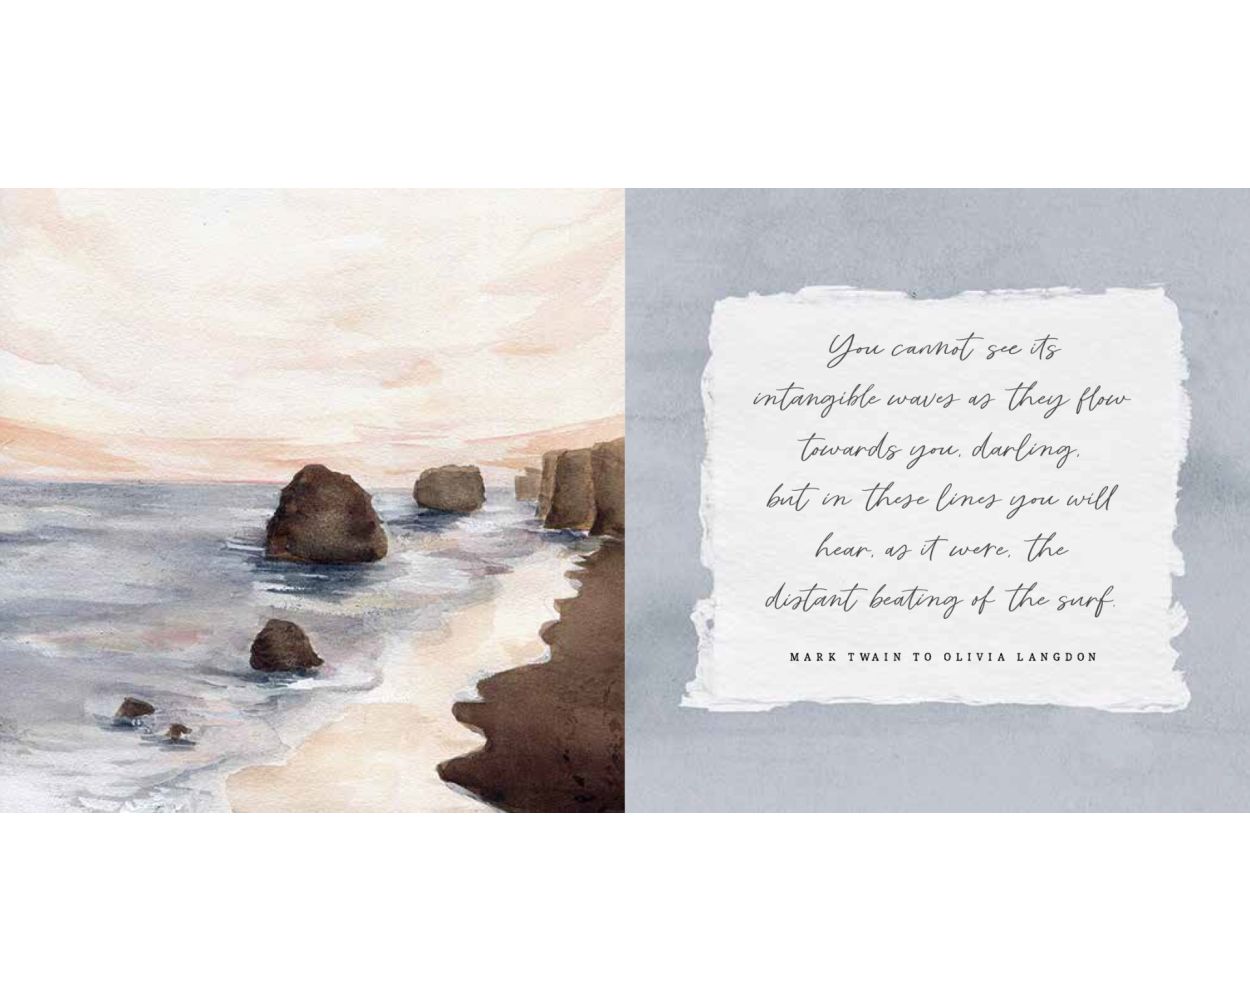 You cannot see its
intangible waves as they flow
towards you, darling,
but in these lines you will
hear, as it were, the
distant beating of the surf.
MARK TWAIN TO OLIVIA LANGDON